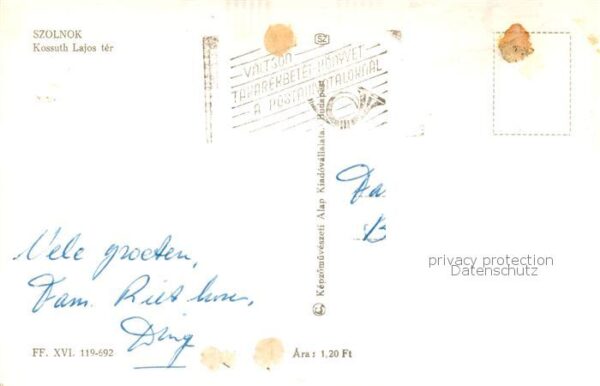 SZOLNOK
Kossuth Lajos tér
SZ
VÁLTSON
TAKARÉKBETÉT KÖNYVET
A POSTAHIVATALOKNÁL
Képzőművészeti Alap Kiadóvállalata, Budapest
Fa
B
privacy protection
Datenschutz
Vele groeten,
Fam.
FF. XVI. 119-692
Ára: 1,20 Ft